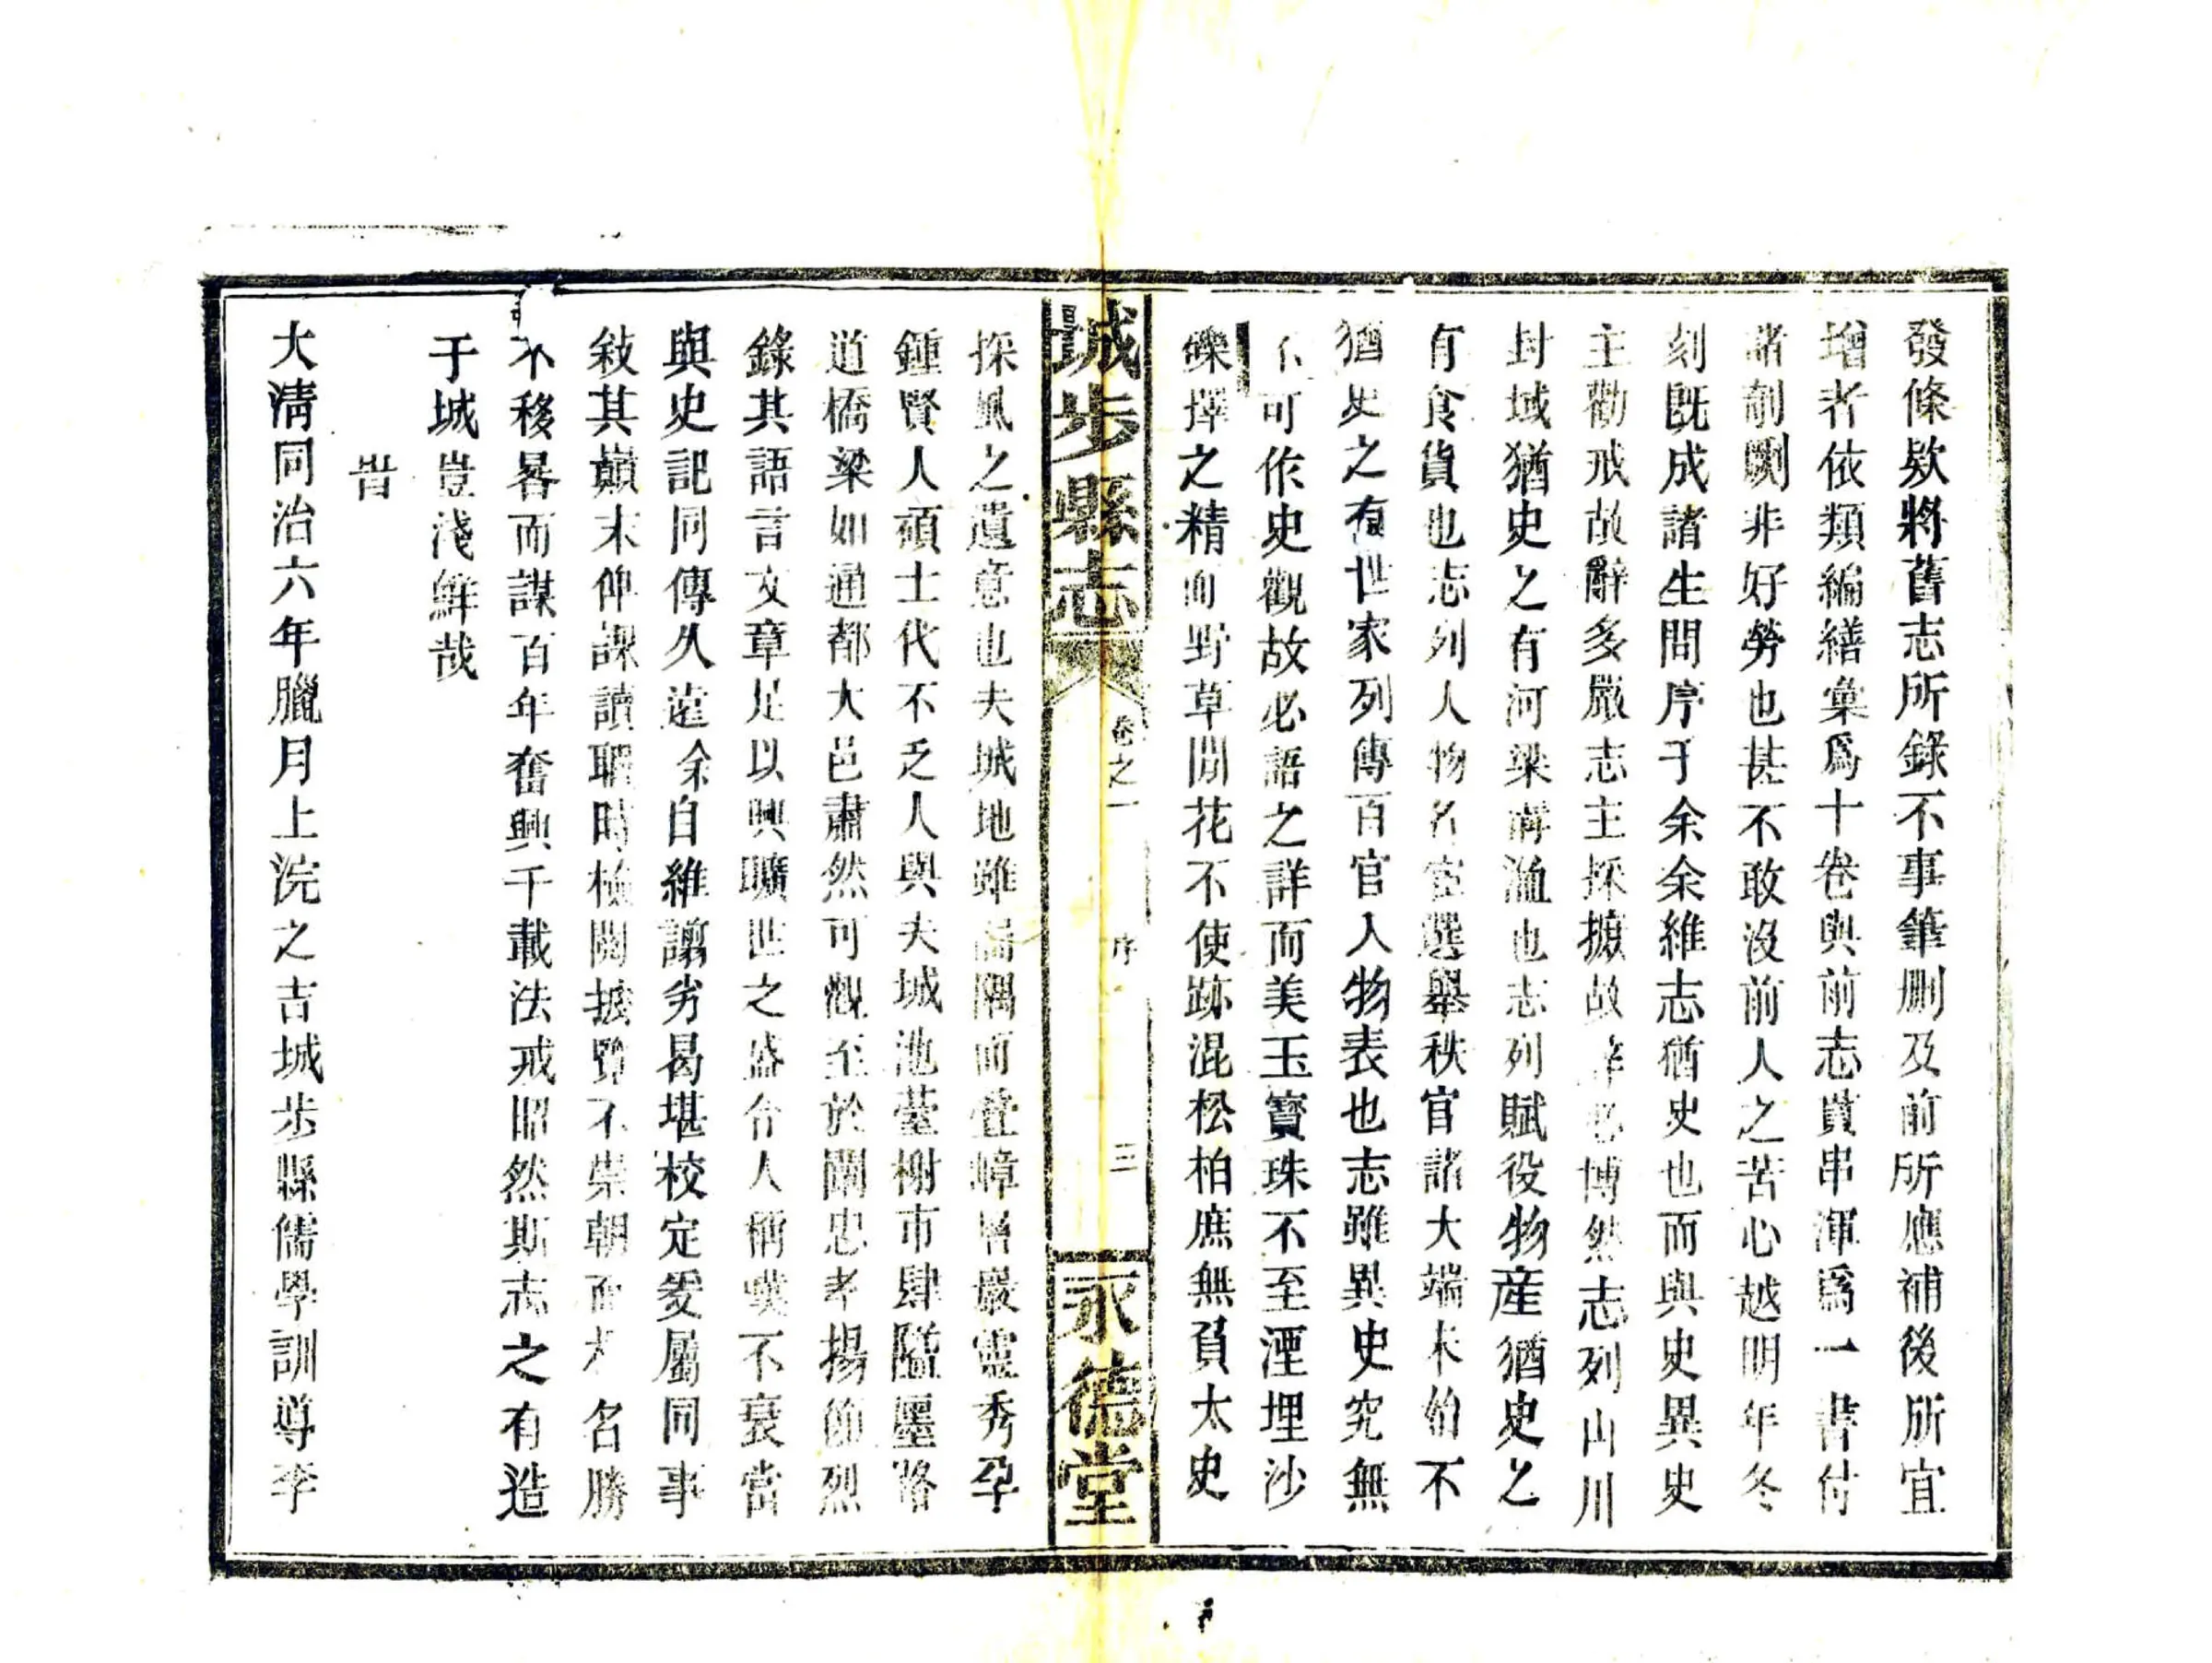 發條欵將舊志所錄不事筆刪及前所應補後所宜
增者依類編繕彙爲十卷與前志貫串渾爲一書付
諸剞劂非好勞也甚不敢沒前人之苦心越明年冬
刻既成諸生問序于余余維志猶史也而與史異史
主勸戒故辭多嚴志主採摭故必博然志列山川
封域猶史之有河梁溝洫也志列賦役物産猶史之
有食貨也志列人物名宦選舉秩官諸大端未始不
猶史之有世家列傳百官人物表也志雖異史究無
不可作史觀故必語之詳而美玉寶珠不至湮埋沙
礫擇之精而野草閒花不使跡混松柏庶無負太史
城步縣志
卷之一
序
三
永德堂
採風之遺意也夫城地雖隅而疊嶂層巖靈秀孕
鍾賢人碩士代不乏人與夫城池臺榭市肆隘墨路
道橋梁如通都大邑肅然可觀至於闡忠孝揚節烈
錄其語言文章足以興曠世之盛令人稱嘆不衰當
與史記同傳久遠余自維譾劣曷堪校定爰屬同事
敍其巔末仰課讀聯時檢閱披覽不崇朝而名勝
不移晷而謀百年奮興千載法戒昭然斯志之有造
于城豈淺鮮哉
旹
大淸同治六年臘月上浣之吉城步縣儒學訓導李